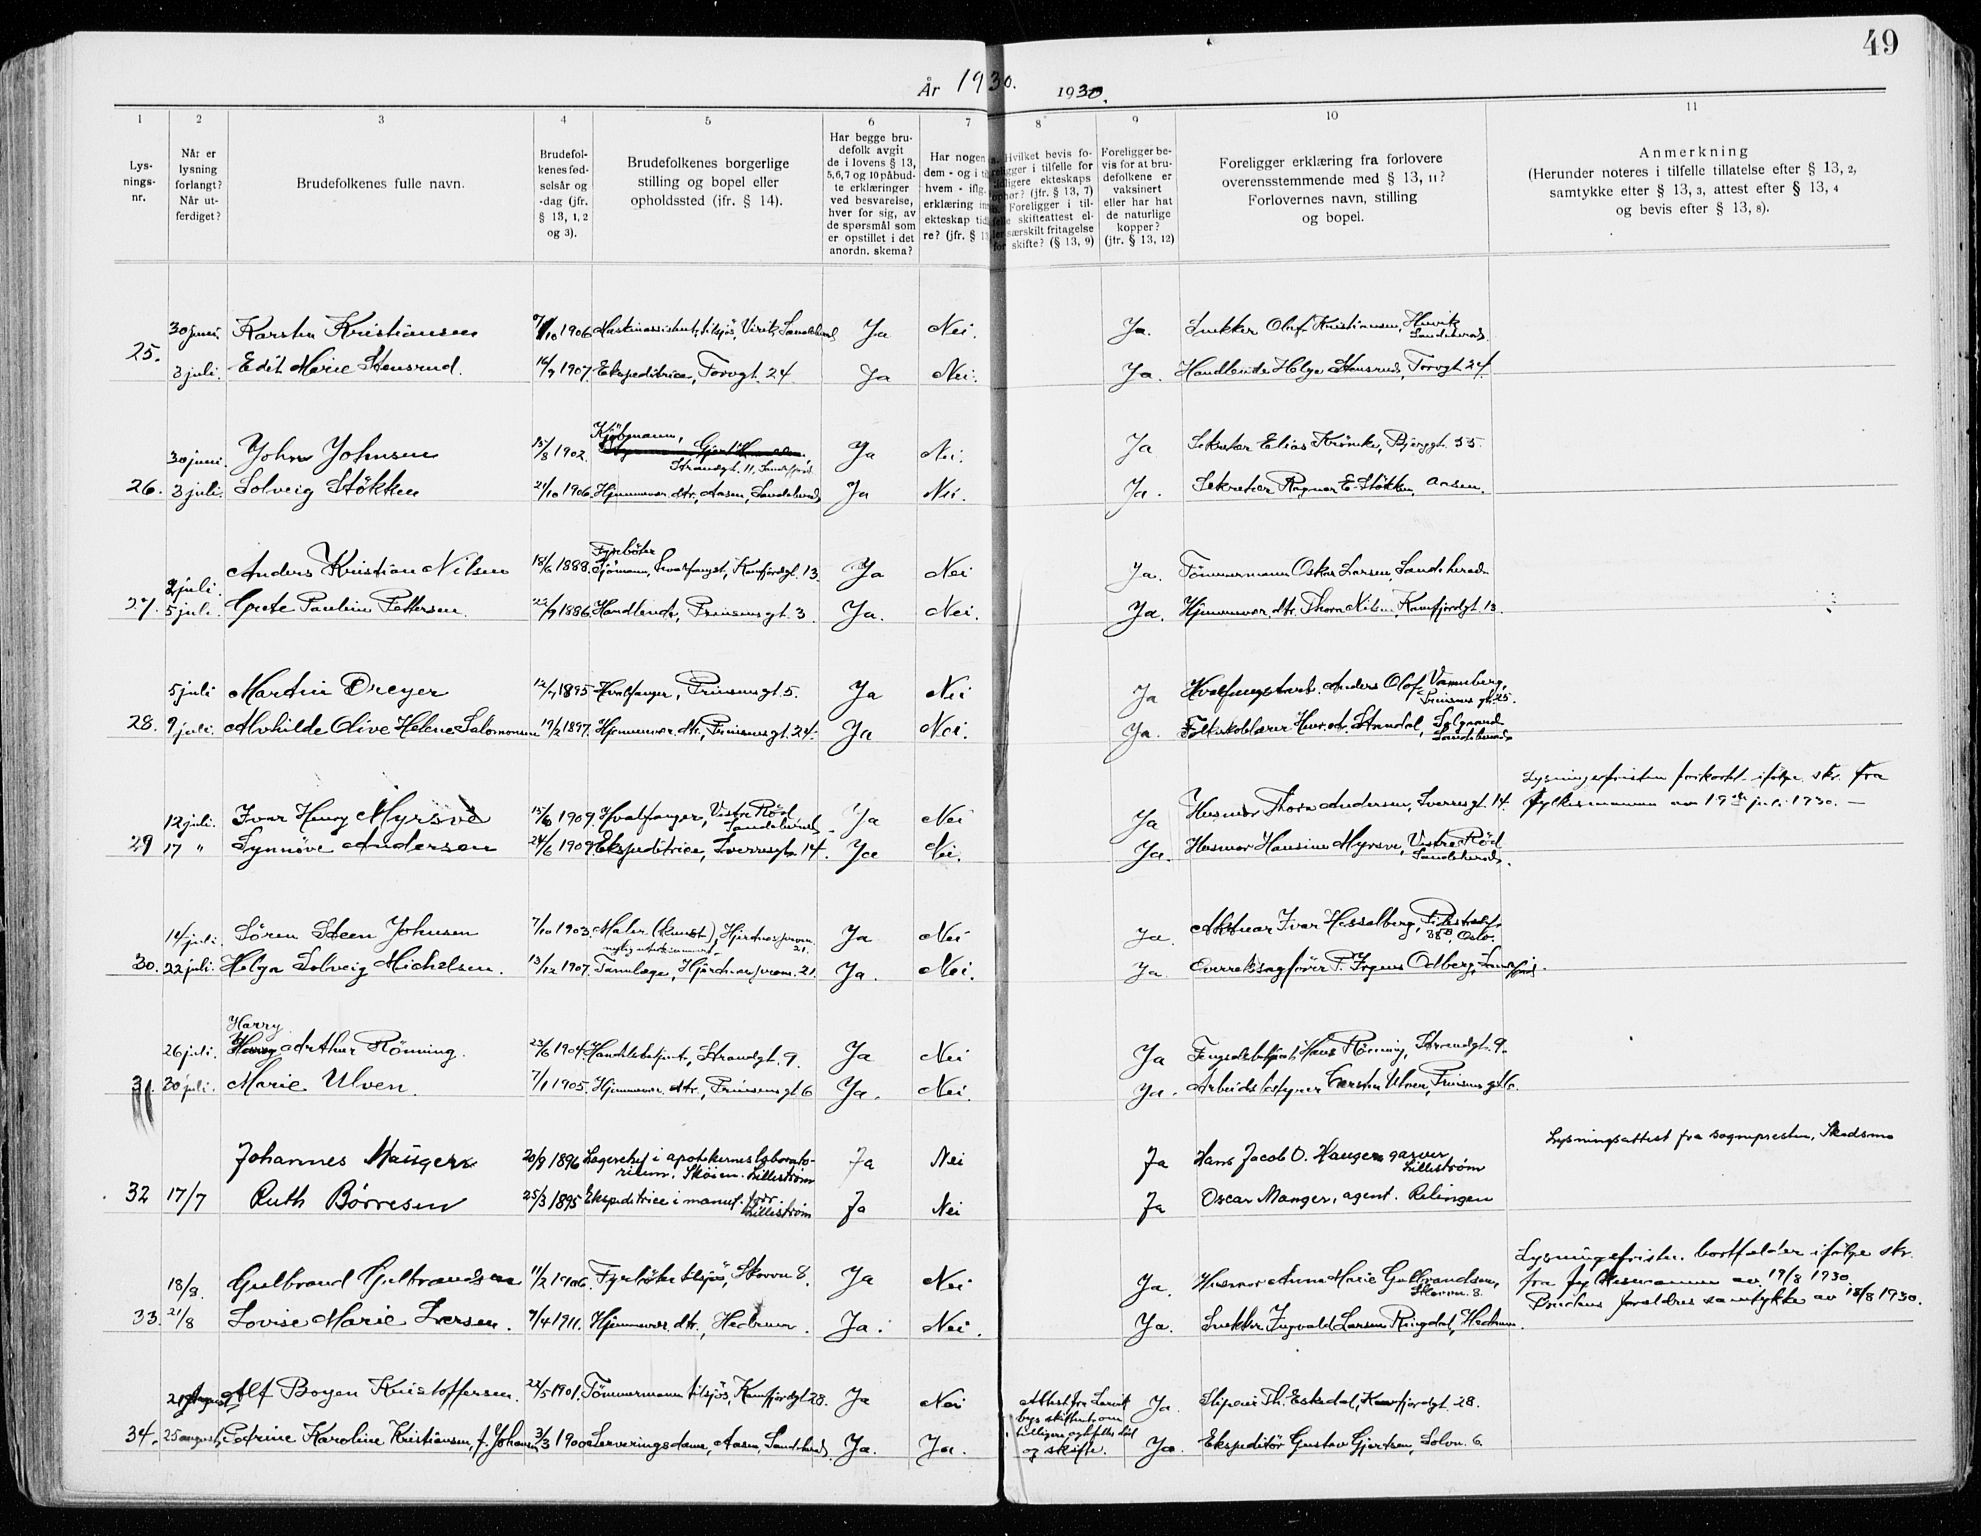 49
År 1930. 1930.
1 2 3 4 5 6 7 8 9 10 11
Lys-
nings-
nr.
Når er
lysning
forlangt?
Når ut-
ferdiget?
Brudefolkenes fulle navn.
Brudefol-
kenes fød-
selsår og
-dag (jfr.
§ 13, 1, 2
og 3).
Brudefolkenes borgerlige
stilling og bopel eller
opholdssted (ifr. § 14).
Har begge bru-
defolk avgit
de i lovens § 13,
5, 6, 7 og 10 påbud-
te erklæringer
ved besvarelse,
hver for sig, av
de spørsmål som
er opstillet i det
anordn. skema?
Har nogen
dem - og i
hvem - iflg.
erklæring
ekteskap
re? (jfr. §
Hvilket bevis fo-
religger i tilfelle for
tidligere ekteskaps
ophør? (jfr. § 13, 7)
Foreligger i til-
felle skifteattest el-
ler særskilt fritagelse
for skifte? (§ 13, 9)
Foreligger be-
vis for at bru-
defolkene er
vaksinert
eller har hat
de naturlige
kopper?
(jfr. § 13, 12)
Foreligger erklæring fra forlovere
overensstemmende med § 13, 11?
Forlovernes navn, stilling
og bopel.
Anmerkning
(Herunder noteres i tilfelle tillatelse efter § 13, 2,
samtykke efter § 13, 3, attest efter § 13, 4
og bevis efter § 13, 8).
30 juni. Karsten Kristiansen 1906 Maskinassistent, tilsjøs, Virik, Sandeherad Ja Nei. Ja. Snekker Olaf Kristiansen,
Sandeherad.
25. 3 juli. Edit Marie Stensrud. 1907. Ekspeditrice, Torvgt. 24 Ja Nei. Ja. Handlende Helge Stensrud, Torvgt 24.
Kjøbmann,
30 juni. John Johnsen 15/8 1902. Strandgt. 11, Sandefjord. Ja Nei. Ja Sekretær Elias Bjerggt. 35.
26. 3 juli. Solveig Støkken 21/10 1906. Hjemmevær. dtr., Aasen, Sandeherad Ja Nei. Ja. Sekretær Ragnar E. Støkken, Aasen.
Fyrbøter
2 juli. Anders Kristian Nilsen 18/6 1888. Sjømann, hvalfangst, Kamfjordgt. 13. Ja Nei Ja. Tømmermann Oskar Larsen, Sandeherad
27. 5 juli. Grete Pauline Pettersen. 22/9 1886. Handlende, Prinsensgt. 3. Ja. Nei. Ja. Hjemmevær. dtr. Thora Nilsen, Kamfjordgt. 13.
5 juli Martin Dreyer 12/7 1895 Hvalfanger, Prinsensgt. 5. Ja Nei Ja Hvalfangstarb. Anders Olof Vannberg,
Prinsensgt. 25.
28. 9 juli. Alvhilde Olive Helene Salomonsen 19/2 1897. Hjemmevær. dtr., Prinsensgt. 24. Ja Nei. Ja. Folkeskolelærer Strandal,
Sandeherad
Lysningsfristen forkortet ifølge skr. fra
fylkesmannen av 19de juli 1930. –
12 juli. Ivar Henry Myrsve 15/6 1909. Hvalfanger, Vestre Rød,
Sandeherad. Ja Nei Ja Husmor Thora Andersen, Sverresgt. 14.
29 17 " Synnøve Andersen 24/6 1909 Ekspeditrice, Sverresgt. 14. Ja Nei. Ja. Husmor Hansine Myrsve, Vestre Rød
Sandeherad.
14 juli. Sören Steen Johnsen 7/10 1903. Maler (kunst), Hjertnesprom.
21. Ja Nei Ja. Aktuar Ivar Hesselberg,
38B, Oslo.
30. 22 juli. Helga Solveig Michelsen. 13/12 1907. Tannlæge, Hjertnesprom. 21. Ja. Nei. Ja Overretssagfører T. Odberg,
Harry
26 juli. Arthur Rönning. 23/6 1904. Handelsbetjent, Strandgt. 9. Ja Nei Ja Fengselsbetjent Hans Rönning, Strandgt. 9.
31 30 juli. Marie Ulven. 7/1 1905. Hjemmevær. dtr., Prinsensgt. 6 Ja. Nei. Ja. Arbeidsbestyrer Carsten Ulven, Prinsensgt. 6.
Lysningsattest fra sognepresten, Skedsmo
Johannes Haugen 20/9 1896 Lagerbetj. i apotekernes laborato-
rium. Skøien. Lillestrøm Ja Nei Ja Hans Jacob O. Haugen garver
Lillestrøm
32 17/7 Ruth Børresen 25/3 1895 Ekspeditrice i manuf. forr.
Lillestrøm Ja Nei Ja Oscar Manger, agent. Rælingen
Lysningsfristen bortfalder ifølge skr.
fra fylkesmannen av 19/8 1930.
Brudens foreldres samtykke av 18/8 1930.
18/8. Gulbrand Gulbrandsen 11/2 1906. Fyrbøter tilsjøs, Skovvn 8. Ja Nei Ja. Husmor Anna Marie Gulbrandsen,
Skovvn. 8.
33. 21/8 Lovise Marie Larsen. 9/4 1911. Hjemmevær. dtr., Hedrum. Ja. Nei. Ja. Snekker Ingvald Larsen Ringdal, Hedrum.
august Alf Boyen Kristoffersen. 22/5 1901. Tømmermann tilsjøs, Kamfjordgt 28. Ja Nei Attest fra Larvik
bys skifterett om
tidligere ektefelles død
og skifte. Ja. Th. Eskedal, Kamfjordgt. 28.
34. 25 august, Petrine Karoline Kristiansen, f. Johansen 3/3 1900 Serveringsdame, Aasen, Sandeherad. Ja. Ja. Ja. Ekspeditör Gustav Gjertsen, Solvn. 6.